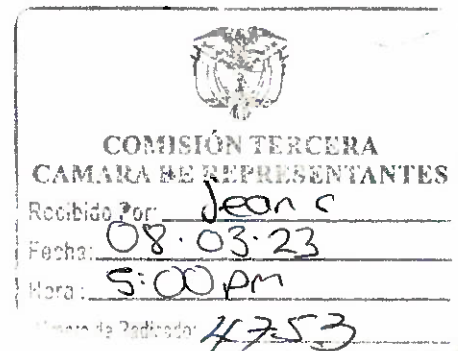 COMISIÓN TERCERA
CAMARA DE REPRESENTANTES
Recibido Por: Jean C
Fecha: 08.03.23
Hora: 5:00 pm
Número de Radicado: 4753